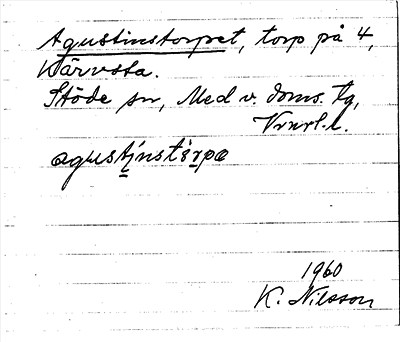 Agustinstorpet, torp på 4,
Kärvsta.
Stöde sn, Med v. doms. tg,
Vrnrl. l.
agustinstårpe
1960
K. Nilsson